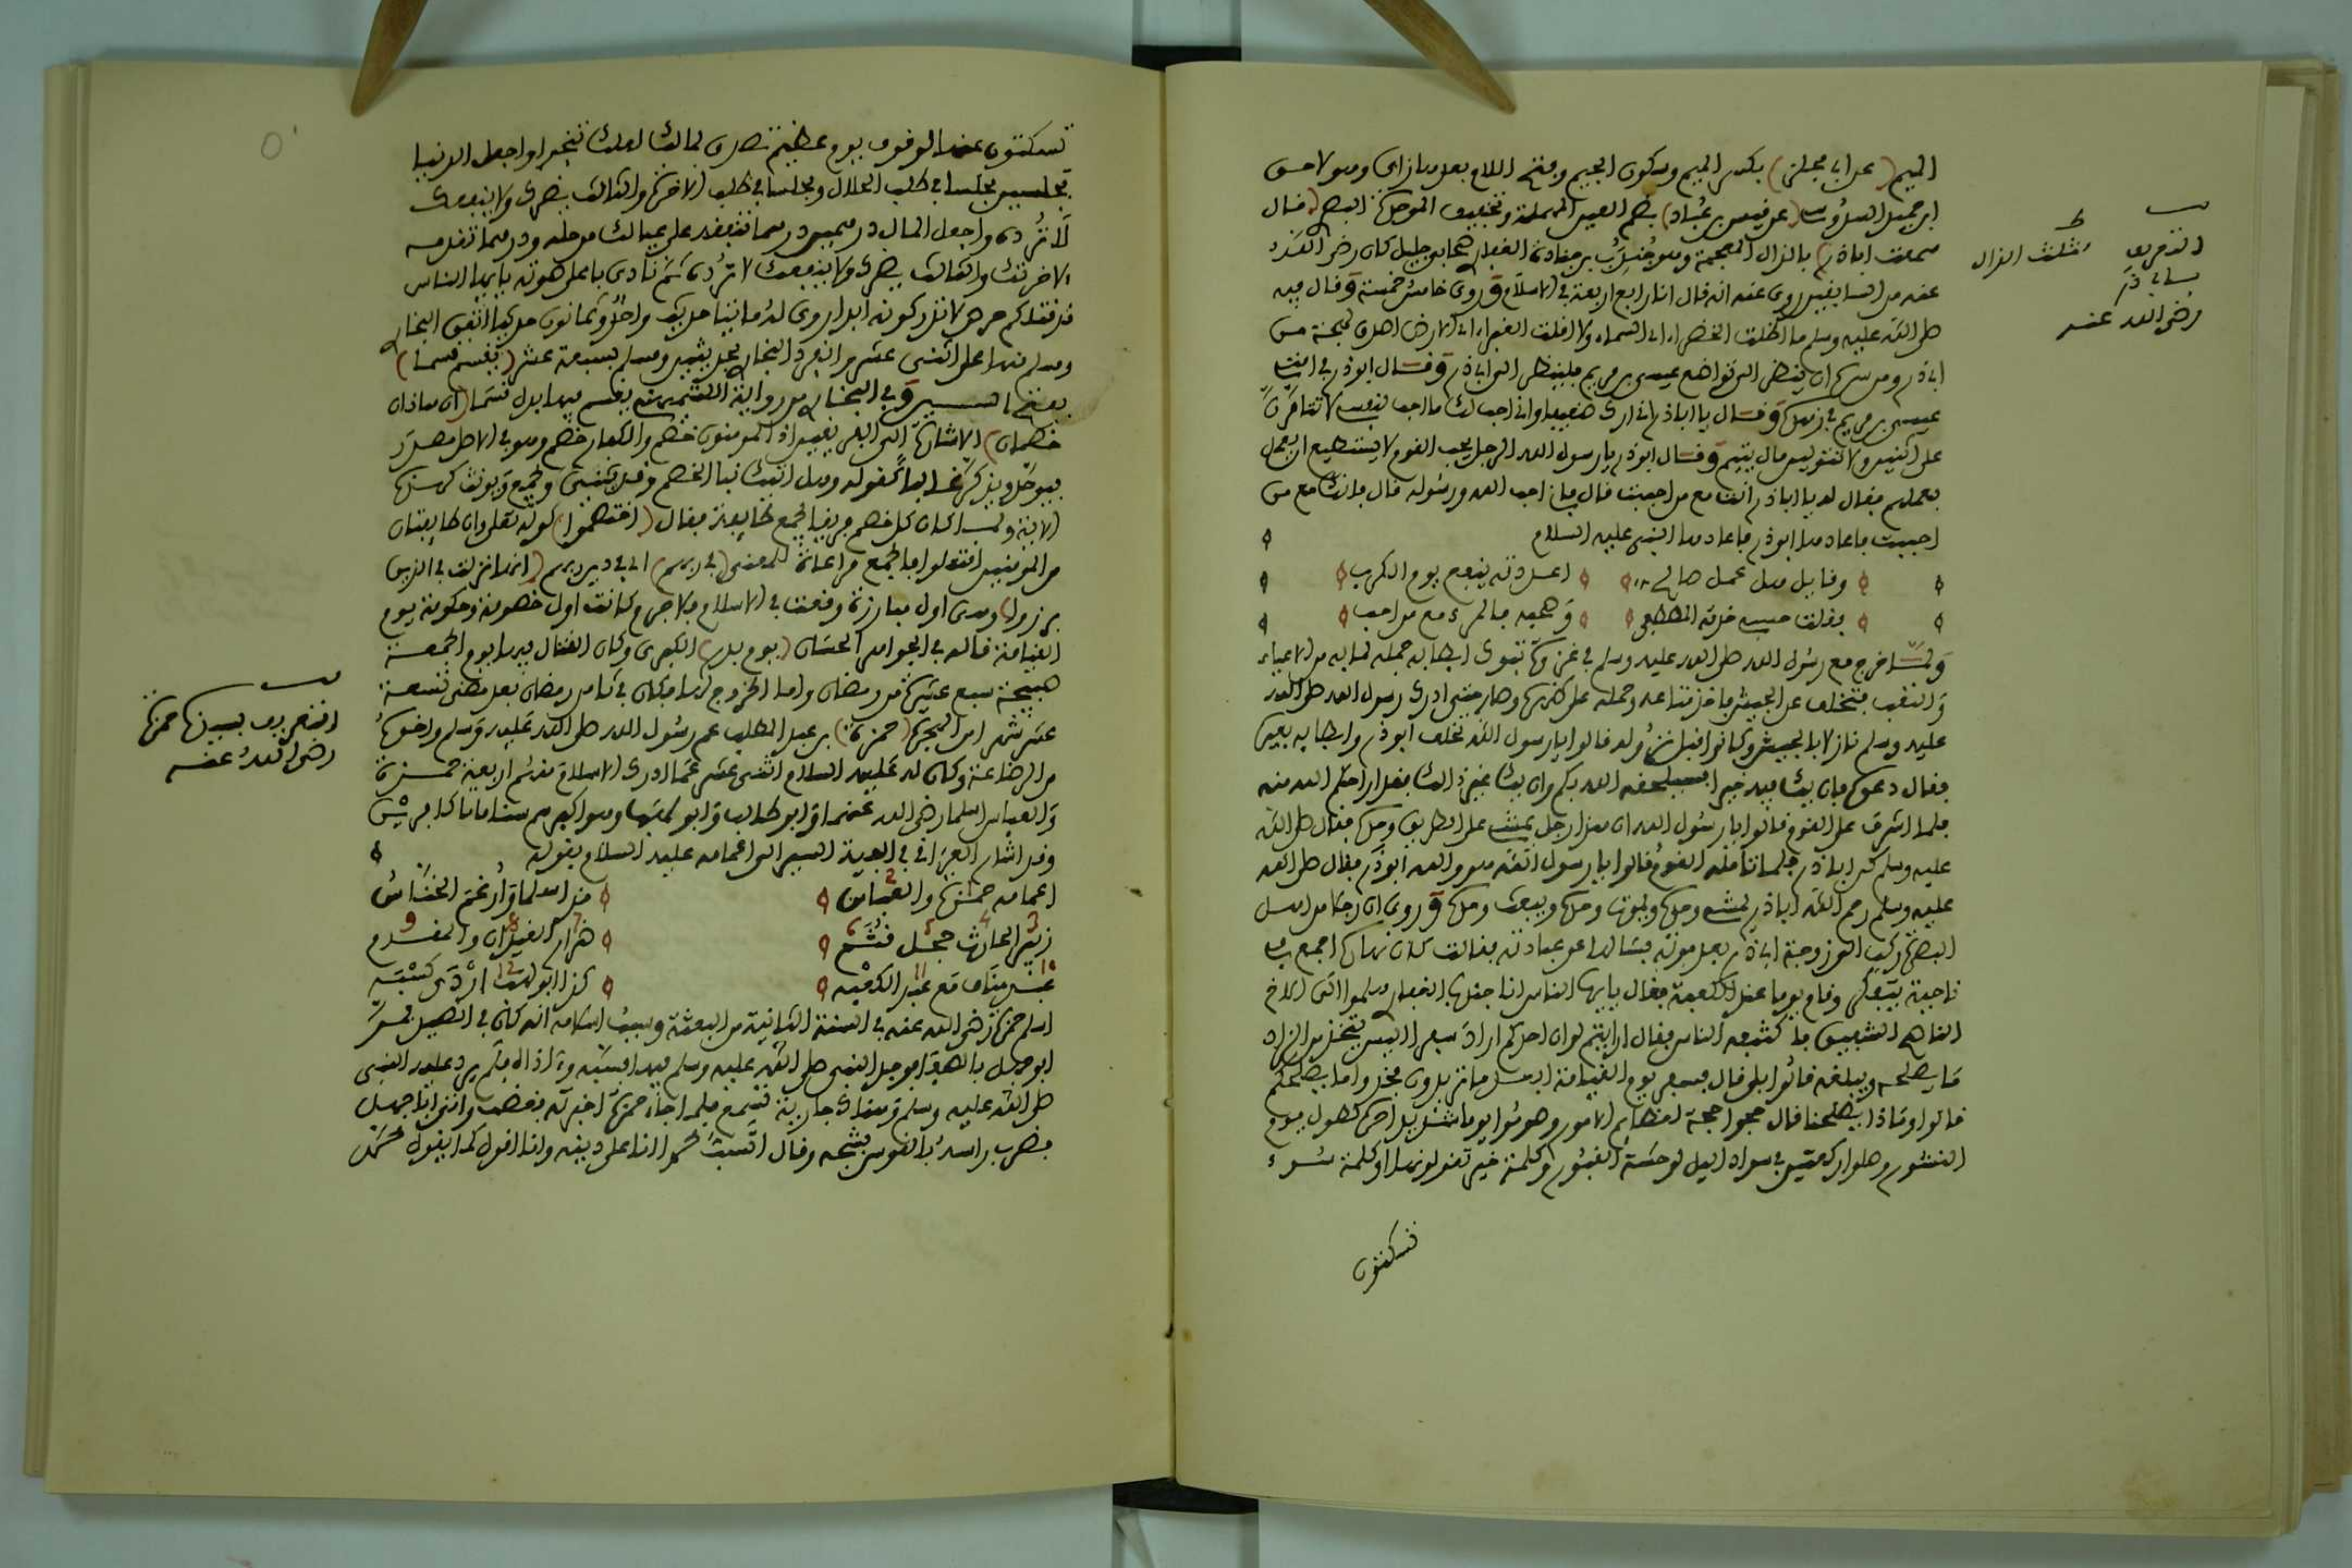 الميم (عن ابي مجلز) بكسر الميم وسكون الجيم وفتح اللام بعدها زاى وهو لاحق
ابن حميد السدوسى (عن قيس بن عُباد) بضم العين المهملة وتخفيف الموحدة البصر (قال
سمعت اباذر) بالذال المعجمة وهو جُندبُ بن جنادة الغفار صحابى جليل كان رضى الله
عنه من السابقين روى عنه انه قال انا رابع اربعة فى الاسلام و روى خامس خمسة وقال فيه
صلى الله عليه وسلم ما اظلت الخضراء اى السماء ولا اقلت الغبراء اى الارض اصدق لهجة من
اباذر ومن سره ان ينظر الى تواضع عيسى بن مريم فلينظر الى اباذر وقال ابوذر فى امتى
عيسى بن مريم فى زهده وقال يا اباذر انى اراك ضعيفا وانى احب لك ما احب لنفسى لا تتأمرن
على اثنين ولا تتولين مال يتيم وقال ابوذر يا رسول الله الرجل يحب القوم لا يستطيع ان يعمل
بعملهم فقال له يا اباذر انت مع من احببت قال فانى احب الله ورسوله قال فانك مع من
احببت فاعادها ابوذر فاعادها النبى عليه السلام
وقائل هل عمل صالح اعددته ينفع يوم الكرب
فقلت حسبى خدمة المصطفى وحبه فالمرء مع من احب
ولما خرج مع رسول الله صلى الله عليه وسلم فى غزوة تبوك ابطا به جمله لما به من الاعياء
والتعب فتخلف عن الجيش فاخذ متاعه وحمله على ظهره وصار حتى ادرك رسول الله صلى الله
عليه وسلم نازلا بالجيش وكانوا قبل نزوله قالوا يا رسول الله تخلف ابوذر وابطا به بعيره
فقال دعوه فان يك فيه خير فسيلحقه الله بكم وان يك غير ذالك فقد اراحكم الله منه
فلما اشرف على القوم قالوا يا رسول الله ان هذا رجل يمشى على الطريق وحده فقال صلى الله
عليه وسلم كن اباذر فلما تأمله القوم قالوا يا رسول الله هو والله ابوذر فقال صلى الله
عليه وسلم رحم الله اباذر يمشى وحده ويموت وحده ويبعث وحده و روى ان رجلا من اهل
البصرة ركب الى زوجة اباذر بعد موته فسالها عن عبادته فقالت كان نهاره اجمع فى
ناحية يتفكر وقام يوما عند الكعبة فقال يايها الناس انا جندب الغفار هلموا الى الاخ
الناصح الشفيق فاكتنفه الناس فقال ارايتم لو ان احدكم اراد سفرا اليس يتخذ من الزاد
ما يصلحه ويبلغه قالوا بلى قال فسفر يوم القيامة ابعد ما تريدون فخذوا ما يصلحكم
قالوا وماذا يصلحنا قال حجوا حجة لعظائم الامور وصوموا يوما شديدا حره لطول يوم
النشور وصلوا ركعتين فى سواد اليل لوحشة القبور وكلمة خير تقولونها او كلمة سوء
تسكتون
التعريف
بابا ذر
رضى الله عنه
مثلث الذال
تسكتون عنها لوقوف يوم عظيم تصدق لمالك لعلك تنجوا واجعل الدنيا
مجلسين مجلسا فى طلب الحلال ومجلسا فى طلب الاخرة والثالث يضرك ولا ينفعك
لا تُرده واجعل المال درهمين درهما تنفقه على عيالك من حله ودرهما تقدمه
لاخرتك والثالث يضرك ولا ينفعك لا تُرده ثم نادى باعلى صوته يايها الناس
قد قتلكم حرص لا تدركونه ابدا روى له مائتا حديث واحد وثمانون حديثا اتفق البخار
ومسلم منها على اثنى عشر وانفرد البخار بحديثين ومسلم بسبعة عشر (يقسم قسما)
بفتح السين وفى البخار من رواية الكشميهنى يقسم فيها بدل قسما (ان هاذان
خصمان) الاشارة الى الفريقين اذ المومنون خصم والكفار خصم وهو فى الاصل مصدر
فيوحد ويذكر غالبا كقوله وهل اتيك نبا الخصم وقد يثنى ويجمع ويونث كهذه
الاية ولما كان كل خصم فريقا يجمع طائفة فقال (اختصموا) كقوله تعلى وان طايفتان
من المومنين اقتتلوا فالجمع مراعاة للمعنى (فى ربهم) اى فى دين ربهم (انها نزلت فى الذين
برزوا) وهى اول مبارزة وقعت فى الاسلام فلا جرم وكانت اول خصومة وحكومة يوم
القيامة قاله فى الجواهر الحسان (يوم بدر) الكبرى وكان القتال فيها يوم الجمعة
صبيحة سبع عشرة من رمضان واما الخروج لها فكان فى ثامن رمضان بعد مضى تسعة
عشر شهر من الهجرة (حمزة) بن عبد المطلب عم رسول الله صلى الله عليه وسلم واخوهُ
من الرضاعة وكان له عليه السلام اثنى عشر عما ادرك الاسلام منهم اربعة حمزة
والعباس اسلما رضى الله عنهما وابو طالب وابو لهب وهو اكبرهم سنا ماتا كافرين
وقد اشار العراقى فى الفية السير الى اعمامه عليه السلام بقوله
اعمامه حمزة والعباس قد اسلما وارغم الخناس
زبير الحارث حجل قثم ضرار الغيدان والمقوم
عبد مناف مع عبد الكعبه كذا ابو لهب اردى كسبه
اسلم حمزة رضى الله عنه فى السنة الثانية من البعثة وسبب اسلامه انه كان فى الصيد فمر
ابو جهل بالصفا فوجد النبى صلى الله عليه وسلم فيه فسبه وءاذاه فلم يرد عليه النبى
صلى الله عليه وسلم وهناك جارية تسمع فلما جاء حمزة اخبرته فغضب واتى اباجهل
فضرب راسه بالقوس فشجه وقال اتسب محمدا انا على دينه وانا اقول كما يقول محمد
التعريف بسيدنا حمزة
رضى الله عنه